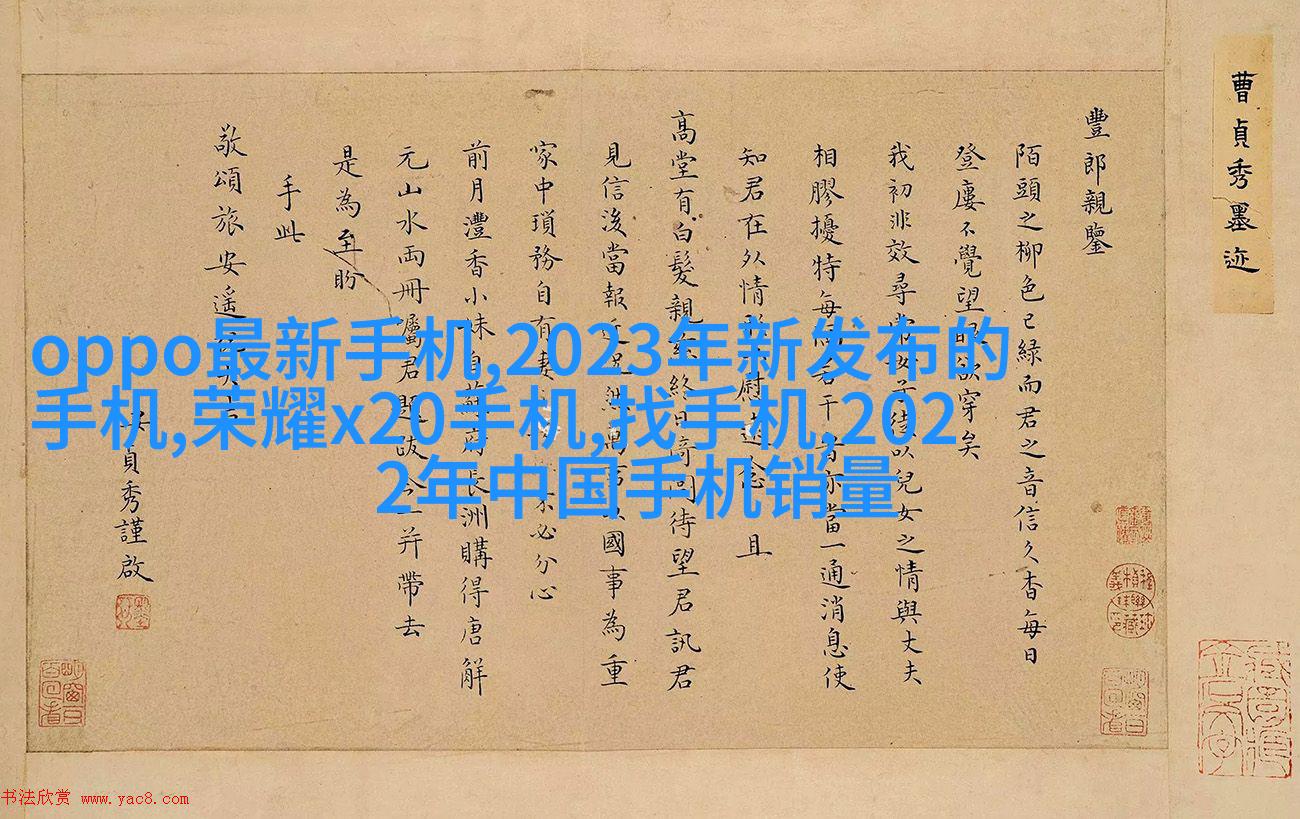 曹貞秀墨迹
豐郎親鑒
陌頭之柳色已緑而君之音信久杳每日
登廔不覺望眼欲穿矣
我初非效尋常女子徒以兒女之情與丈夫
相膠擾特每 若干 亦當一通消息使
知君在外情 慰遠念且
高堂有白髮親 終日倚閭待望君訊君
見信後當報近 萬事以國事為重
家中瑣務自有妻 不必分心
前月灃香小妹自蘇府長洲購得唐解
元山水兩冊屬君題跋今一并帶去
是為至盼
手此
敬頌旅安遥
貞秀謹啟
oppo最新手机,2023年新发布的
手机,荣耀x20手机,找手机,202
2年中国手机销量
书法欣赏 www.yac8.com